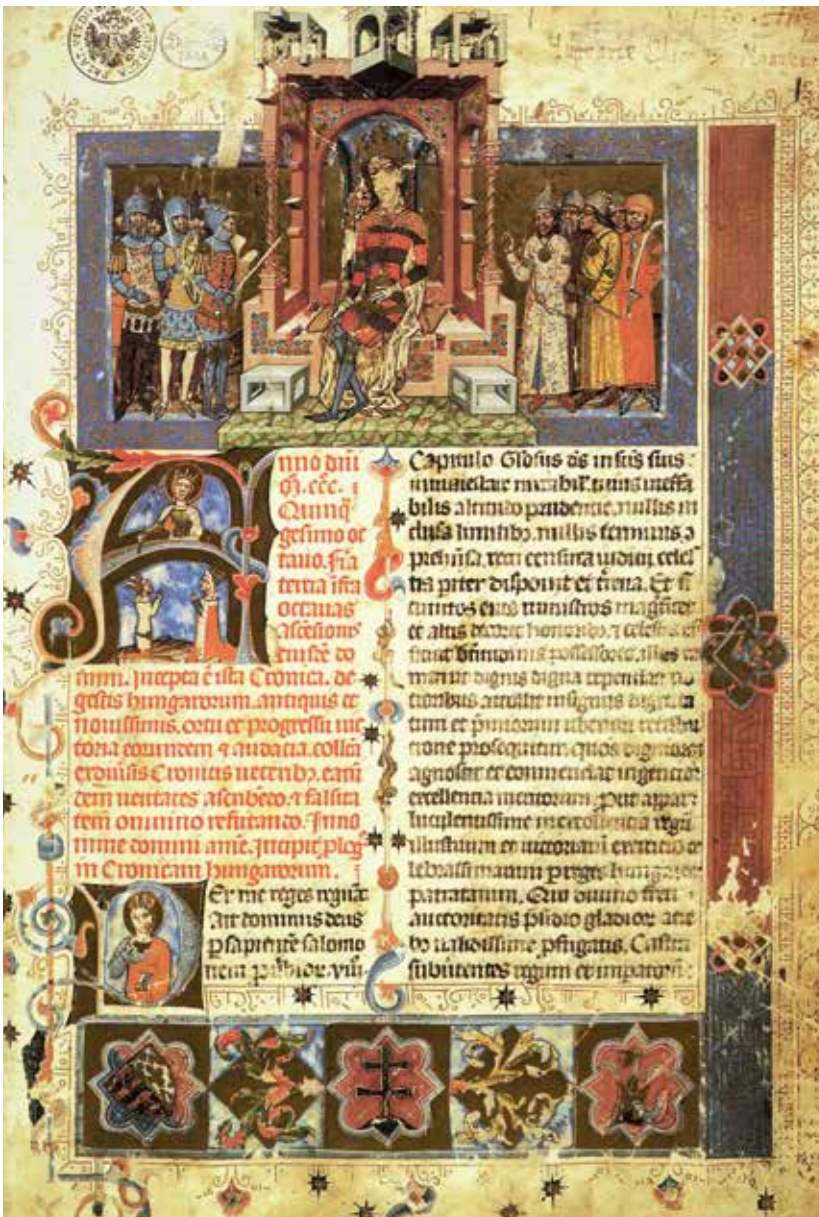 Anno dni
M. ccc.
Quinq
gesimo oc
tauo. fia
tercia ifra
octauas
ascēsionis
eiusdē do
mini. Incepta ē ista Cronica. de
gestis hungarorum. antiquis et
nouissimis. ortu et progressu uic
toria eorundem ⁊ audacia. collea
exdiuisis Cronicis ueteribꝫ. earū
dem ueritates ascribēdo. ⁊ falsita
tem omnino refutando. Inno
mine domini amē. Incipit plog
in Cronicam hungarorum.
Per me reges regnāt
Ait dominus deus
p sapientē salomo
nem puerbior. viii.
Capitulo Glosus ds inscīs suis
inmaiestate mirabil. cuius ineffa
bilis altitudo prudencie. nullis in
clusa limitibꝫ. nullis terminis
phensa. recti censura iudicii celes
tia pariter disponit et terrena. Et si
cunctos eius ministros magnificet
et altis decoret honoribꝫ. ⁊ celestis
possessores. illos
dignis digna
insignis
tum et
tione prosequitur. quos dignosat
agnoscit et commendat ingencior
excellencia meritorum. put appar
luculentissime inexcellencia regū
illustrium et uictoriarū exercicio ce
lebrassimarum p reges hungarie
patratarum. Qui diuino freti
auctoritatis psidio gladiox acie
ualidissime pfligatis. Castra
subiicentes regum et impatorū